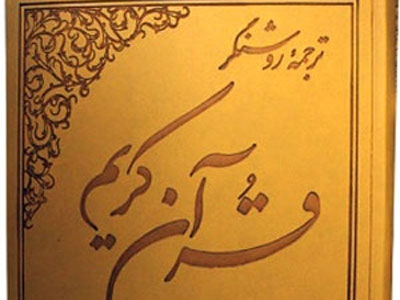 ترجمهٔ روشنگر
قرآن کریم